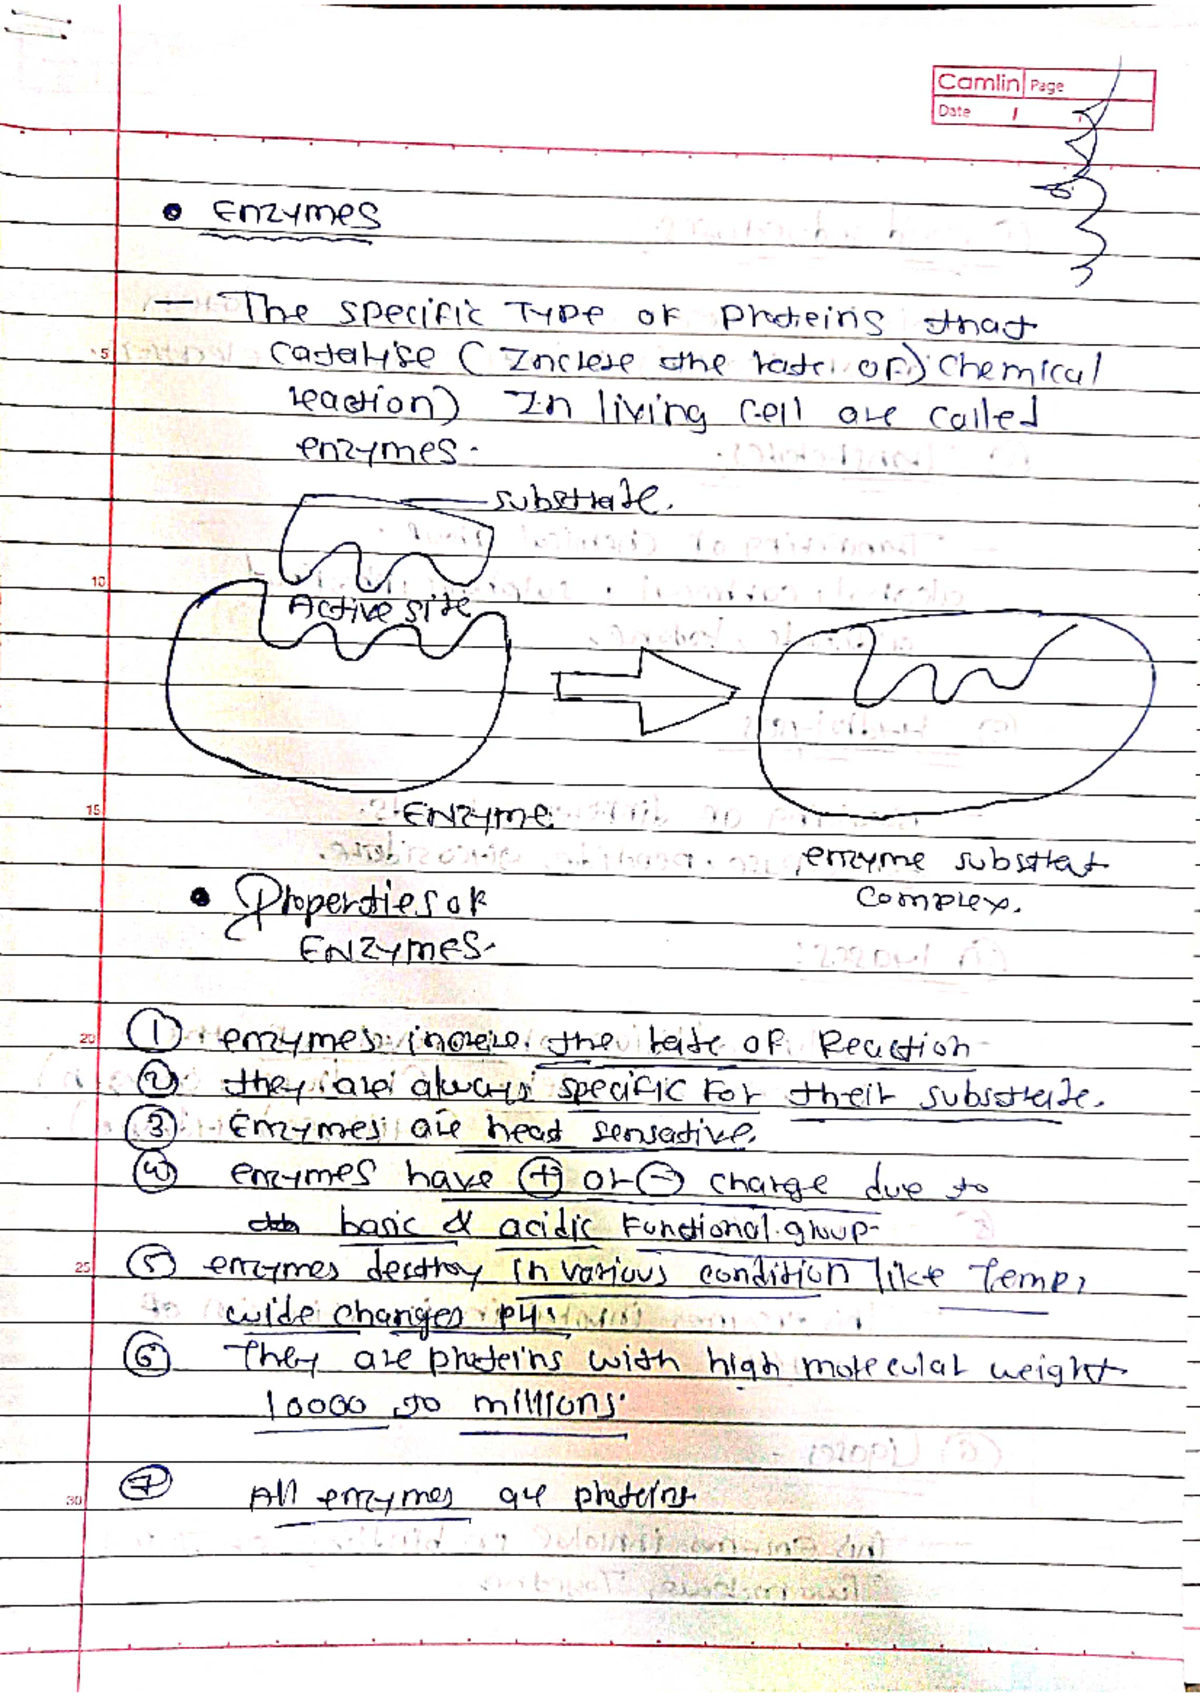 Camlin Page
Date / /
• Enzymes
— The specific Type of proteins that
5
catalise (Increse the rate of) chemical
reaction) In living cell are called
enzymes.
substrate.
10
Active site
15
Enzyme
enzyme substrat
complex.
• Properties of
ENZYMES.
20
① enzymes increse the rate of Reaction
② they are always specific for their substrate.
③ Enzymes are heat sensative.
④ enzymes have ⊕ or ⊖ charge due to
basic & acidic Functional group
25
⑤ enzymes destroy in various condition like Temp,
wide changes pH.
⑥ They are proteins with high molecular weight
10000 to millions.
30
⑦ All enzymes are proteins